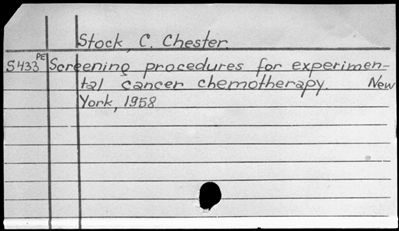 Stock, C. Chester.
S433 PE Screening procedures for experimen-
tal cancer chemotherapy. New
York, 1958